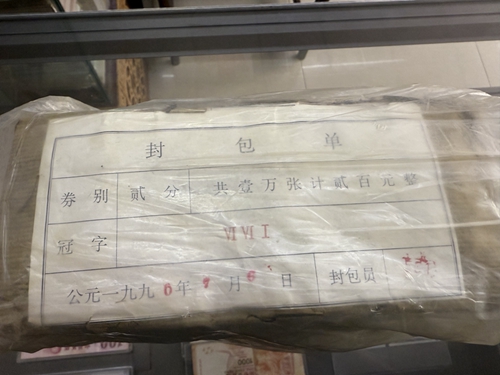 封包单
券别 贰分 共壹万张计贰百元整
冠字 VI VI I
公元一九九0年 月6日 封包员